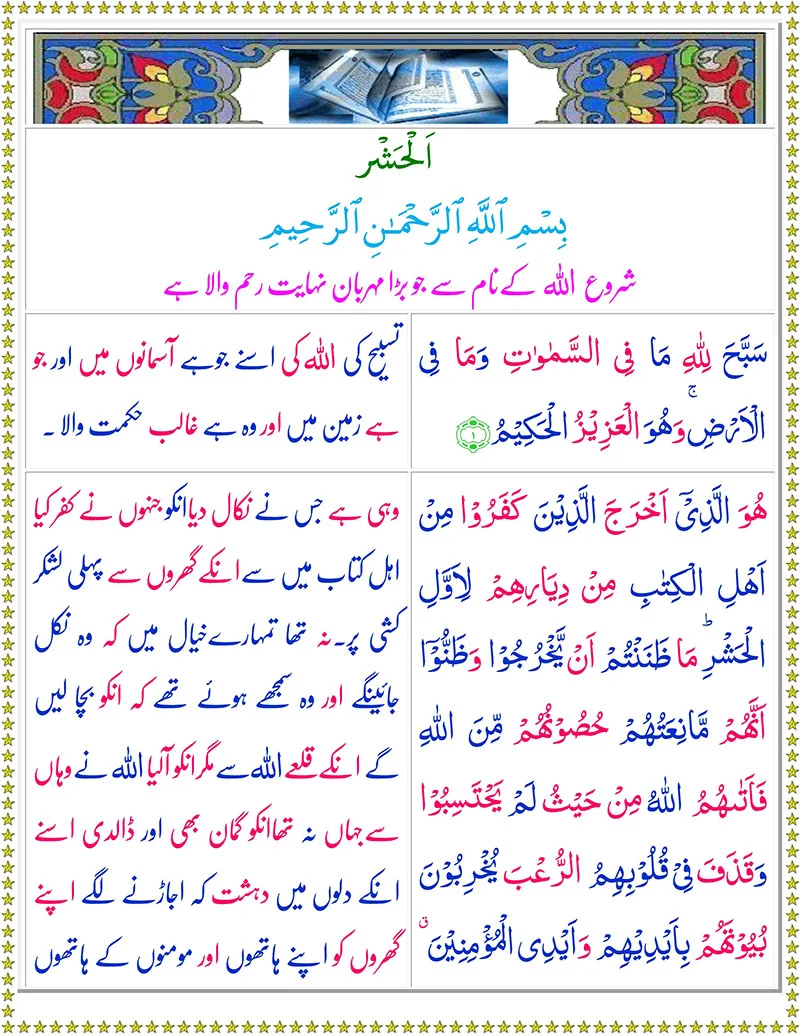 اَلْحَشْر
بِسْمِ ٱللَّهِ ٱلرَّحْمَـٰنِ ٱلرَّحِيمِ
شروع اللہ کے نام سے جو بڑا مہربان نہایت رحم والا ہے
سَبَّحَ لِلّٰهِ مَا فِى السَّمٰوٰتِ وَمَا فِى
الْاَرْضِ ۚ وَهُوَ الْعَزِيْزُ الْحَكِيْمُ ﴿۱﴾
تسبیح کی اللہ کی اسنے جوہے آسمانوں میں اور جو
ہے زمین میں اور وہ ہے غالب حکمت والا ۔
هُوَ الَّذِىْۤ اَخْرَجَ الَّذِيْنَ كَفَرُوْا مِنْ
اَهْلِ الْكِتٰبِ مِنْ دِيَارِهِمْ لِاَوَّلِ
الْحَشْرِ ؕ مَا ظَنَنْتُمْ اَنْ يَّخْرُجُوْا وَظَنُّوْۤا
اَنَّهُمْ مَّانِعَتُهُمْ حُصُوْنُهُمْ مِّنَ اللّٰهِ
فَاَتٰٮهُمُ اللّٰهُ مِنْ حَيْثُ لَمْ يَحْتَسِبُوْا
وَقَذَفَ فِىْ قُلُوْبِهِمُ الرُّعْبَ يُخْرِبُوْنَ
بُيُوْتَهُمْ بِاَيْدِيْهِمْ وَاَيْدِى الْمُؤْمِنِيْنَ ۙ
وہی ہے جس نے نکال دیا انکو جنہوں نے کفر کیا
اہل کتاب میں سے انکے گھروں سے پہلی لشکر
کشی پر۔ نہ تھا تمہارے خیال میں کہ وہ نکل
جائینگے اور وہ سمجھے ہوئے تھے کہ انکو بچا لیں
گے انکے قلعے اللہ سے مگر انکو آلیا اللہ نے وہاں
سے جہاں نہ تھا انکو گمان بھی اور ڈالدی اسنے
انکے دلوں میں دہشت کہ اجاڑنے لگے اپنے
گھروں کو اپنے ہاتھوں اور مومنوں کے ہاتھوں